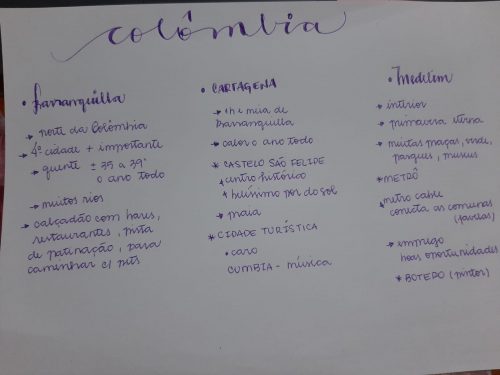 colômbia
• Barranquilla
→ norte da Colômbia
→ 4ª cidade + importante
→ quente ± 35 a 39°
o ano todo
→ muitos rios
→ calçadão com bares,
restaurantes, pista
de patinação, para
caminhar c/ pets
• CARTAGENA
→ 1h e meia de
Barranquilla
→ calor o ano todo
* CASTELO SÃO FELIPE
centro histórico
belíssimo por do sol
→ praia
* CIDADE TURÍSTICA
• caro
CUMBIA - música
• Medelim
→ interior
→ primavera eterna
→ muitas praças, verde,
parques, museus
* METRÔ
metro cable
conecta as comunas
(favelas)
→ emprego
boas oportunidades
* BOTERO (pintor)